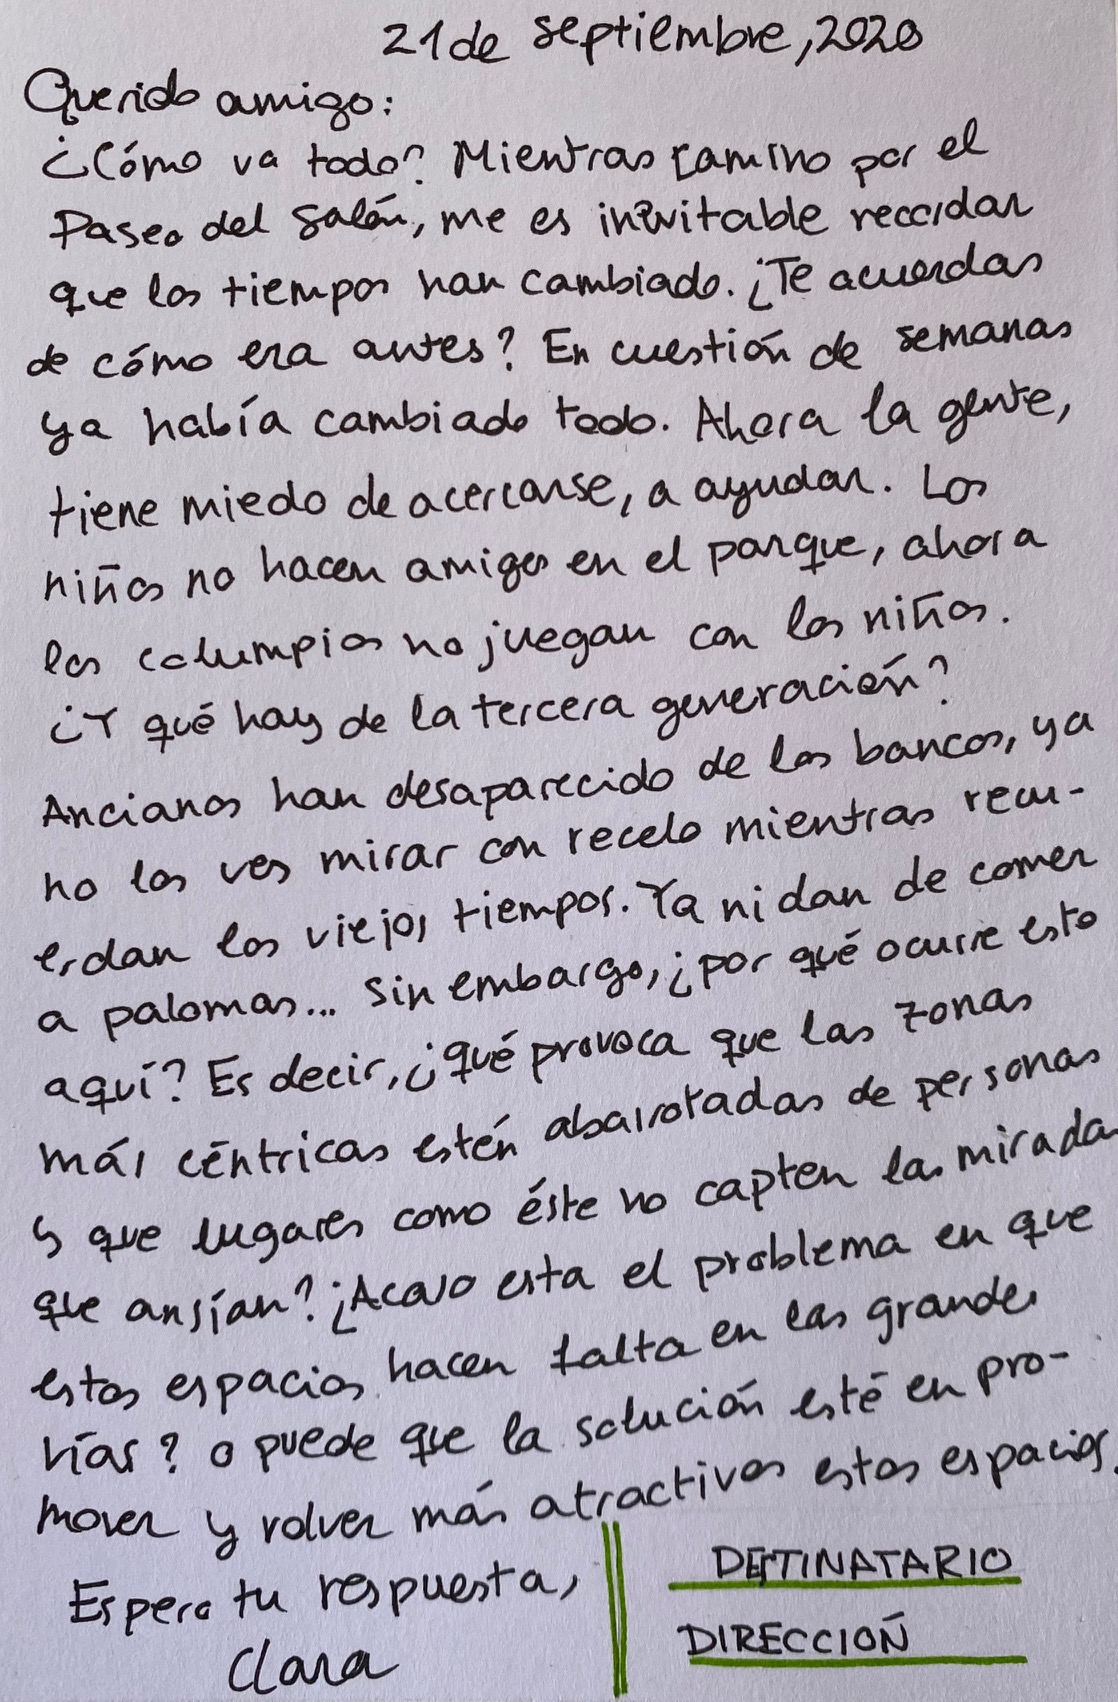 21 de septiembre, 2020
Querido amigo:
¿Cómo va todo? Mientras camino por el
Paseo del Salón, me es inevitable recordar
que los tiempos han cambiado. ¿Te acuerdas
de cómo era antes? En cuestión de semanas
ya había cambiado todo. Ahora la gente,
tiene miedo de acercarse, a ayudar. Los
niños no hacen amigos en el parque, ahora
los columpios no juegan con los niños.
¿Y qué hay de la tercera generación?
Ancianos han desaparecido de los bancos, ya
no los ves mirar con recelo mientras recu-
erdan los viejos tiempos. Ya ni dan de comer
a palomas... Sin embargo, ¿por qué ocurre esto
aquí? Es decir, ¿qué provoca que las zonas
más céntricas estén abarrotadas de personas
y que lugares como éste no capten las miradas
que ansían? ¿Acaso esta el problema en que
estos espacios hacen falta en las grandes
vías? o puede que la solución esté en pro-
mover y volver más atractivos estos espacios.
Espero tu respuesta,
Clara
DESTINATARIO
DIRECCIOÑ